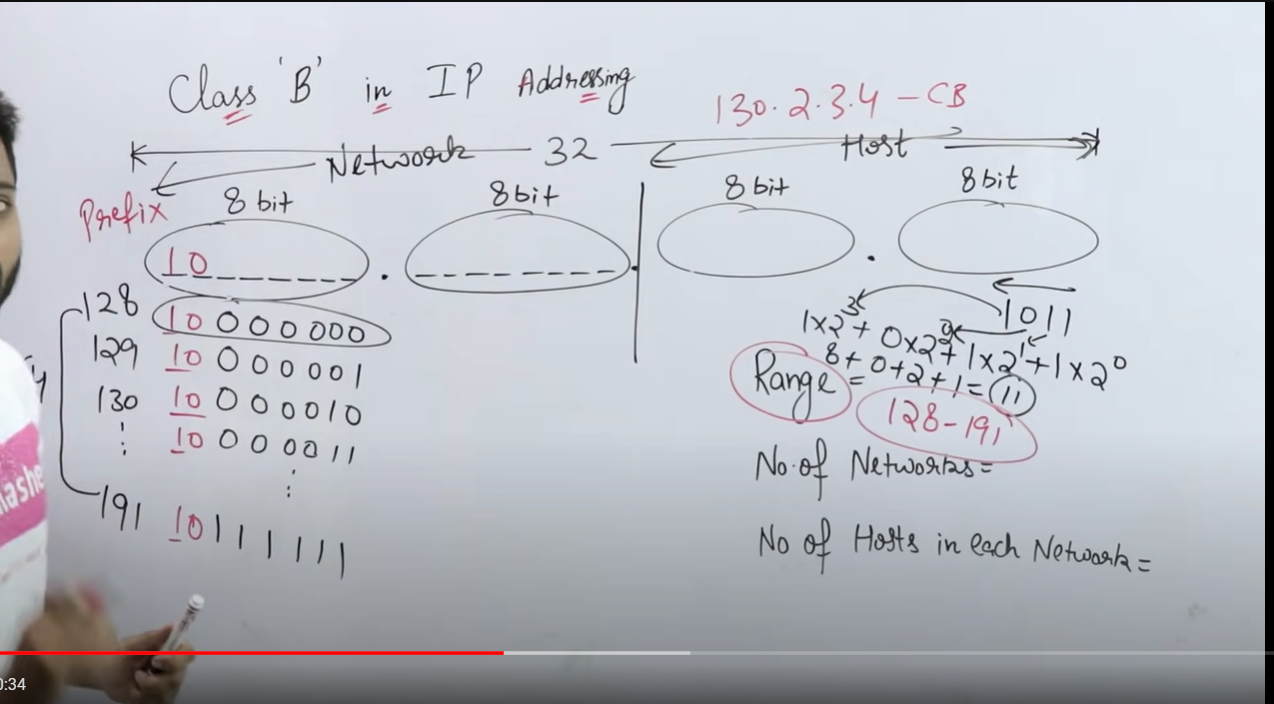 Class 'B' in IP Addressing
130.2.3.4 - CB
Network 32 Host
Prefix 8 bit 8bit 8 bit 8bit
10______ . ________ . .
128 10000000
129 10000001
130 10000010
10000011
191 10111111
1011
1x2³ + 0x2² + 1x2¹ + 1x2⁰
8+0+2+1 = 11
Range = 128-191
No. of Networks=
No of Hosts in each Network=
0:34